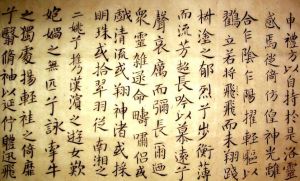 申禮方以自持於是洛靈
感焉徙倚彷徨神光離
合乍陰乍陽擢輕軀以
鶴立若將飛而未翔踐
椒塗之郁烈步蘅薄
而流芳超長吟以慕遠兮
聲哀厲而彌長爾迺
衆靈雜遝命疇嘯侶或
戲清流或翔神渚或採
明珠或拾翠羽從南湘之
二姚兮攜漢濱之遊女歎
匏媧之無匹兮詠牽牛
之獨處揚輕袿之倚靡
兮翳脩袖以延佇體迅飛